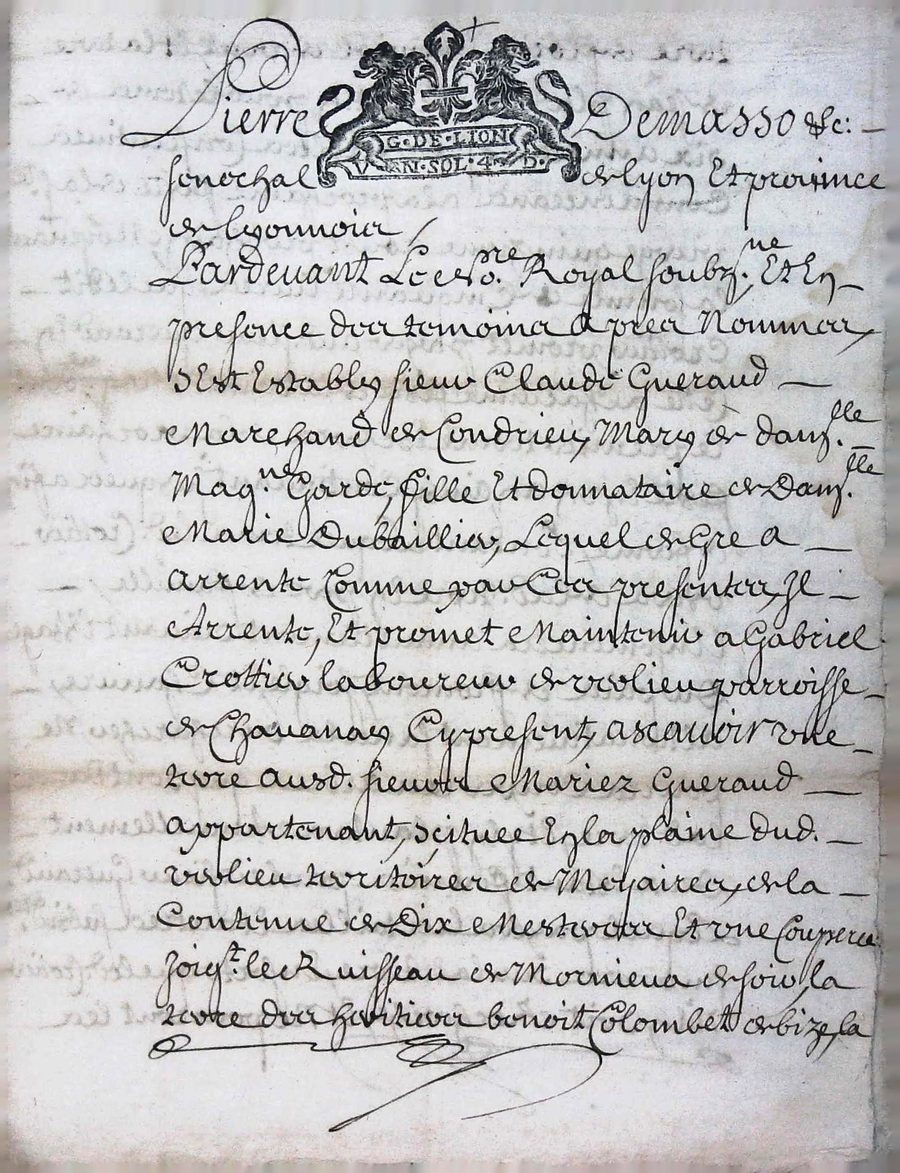 Pierre Demasso &c:
G · DE · LION
VN · SOL · 4 · D ·
senechal de lyon Et province
de lyonnois
Pardevant Le no.re Royal soubz.ne Et En
presence des temoins apres Nommes,
s'Est Estably sieur Claude Gueraud
Marchand de Condrieu, Mary de dam.lle
Mag.ne Garde, fille Et donnataire de Dam.lle
Marie Dubaillier, Lequel de Gre a
arrente Comme par Ces presentes, Il
Arrente, Et promet Maintenir a Gabriel
Crottier laboureur de verlieu parroisse
de Chavanay Cy present, ascavoir vne
terre ausd. sieurs Mariez Gueraud
appartenant, scituee En la plaine dud.
verlieu territoires de Moyaires, de la
Contenue de Dix Mesteras Et vne Couperee
Joig.t le Ruisseau de Mornieux de soir, la
terre des heritiers benoit Colombet de bize, la